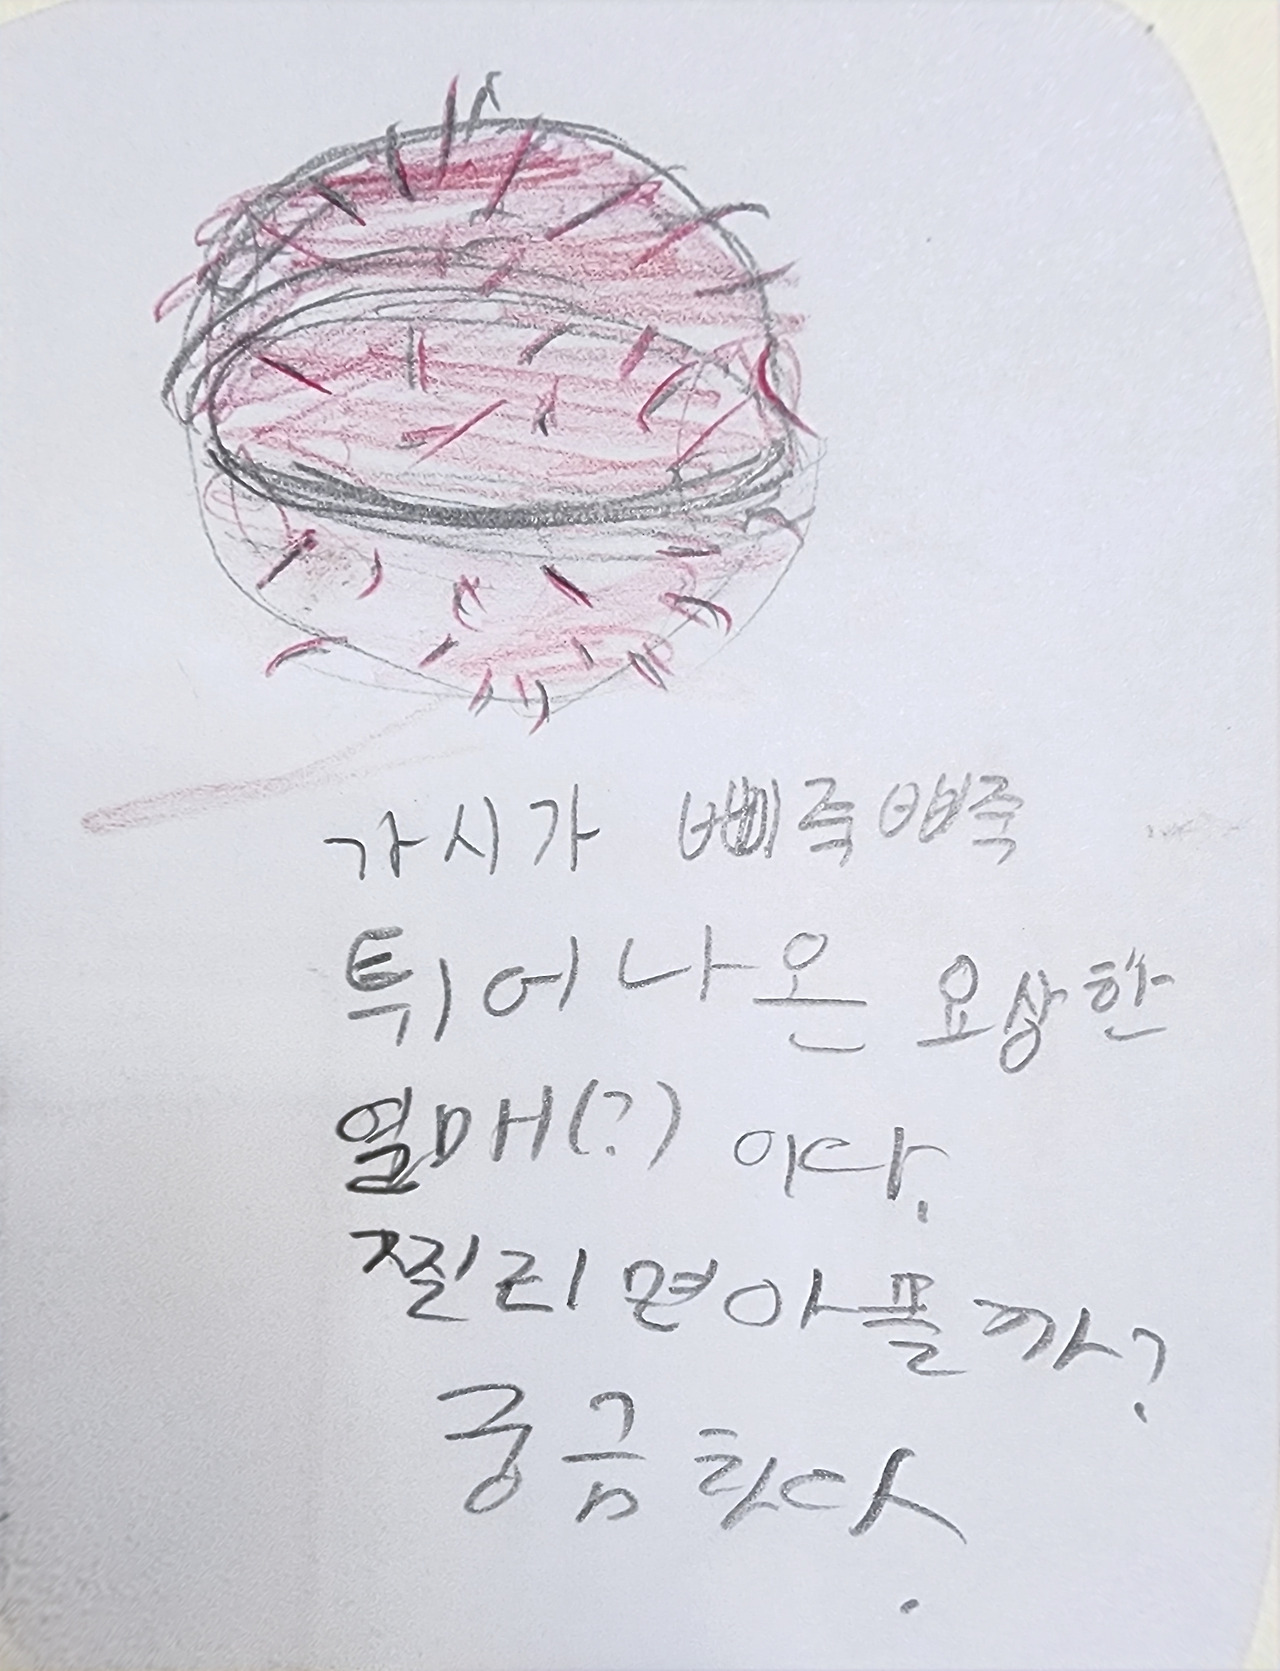 가시가 삐죽삐죽
튀어나온 요상한
열매(?) 이다.
찔리면 아플까?
궁금하다.